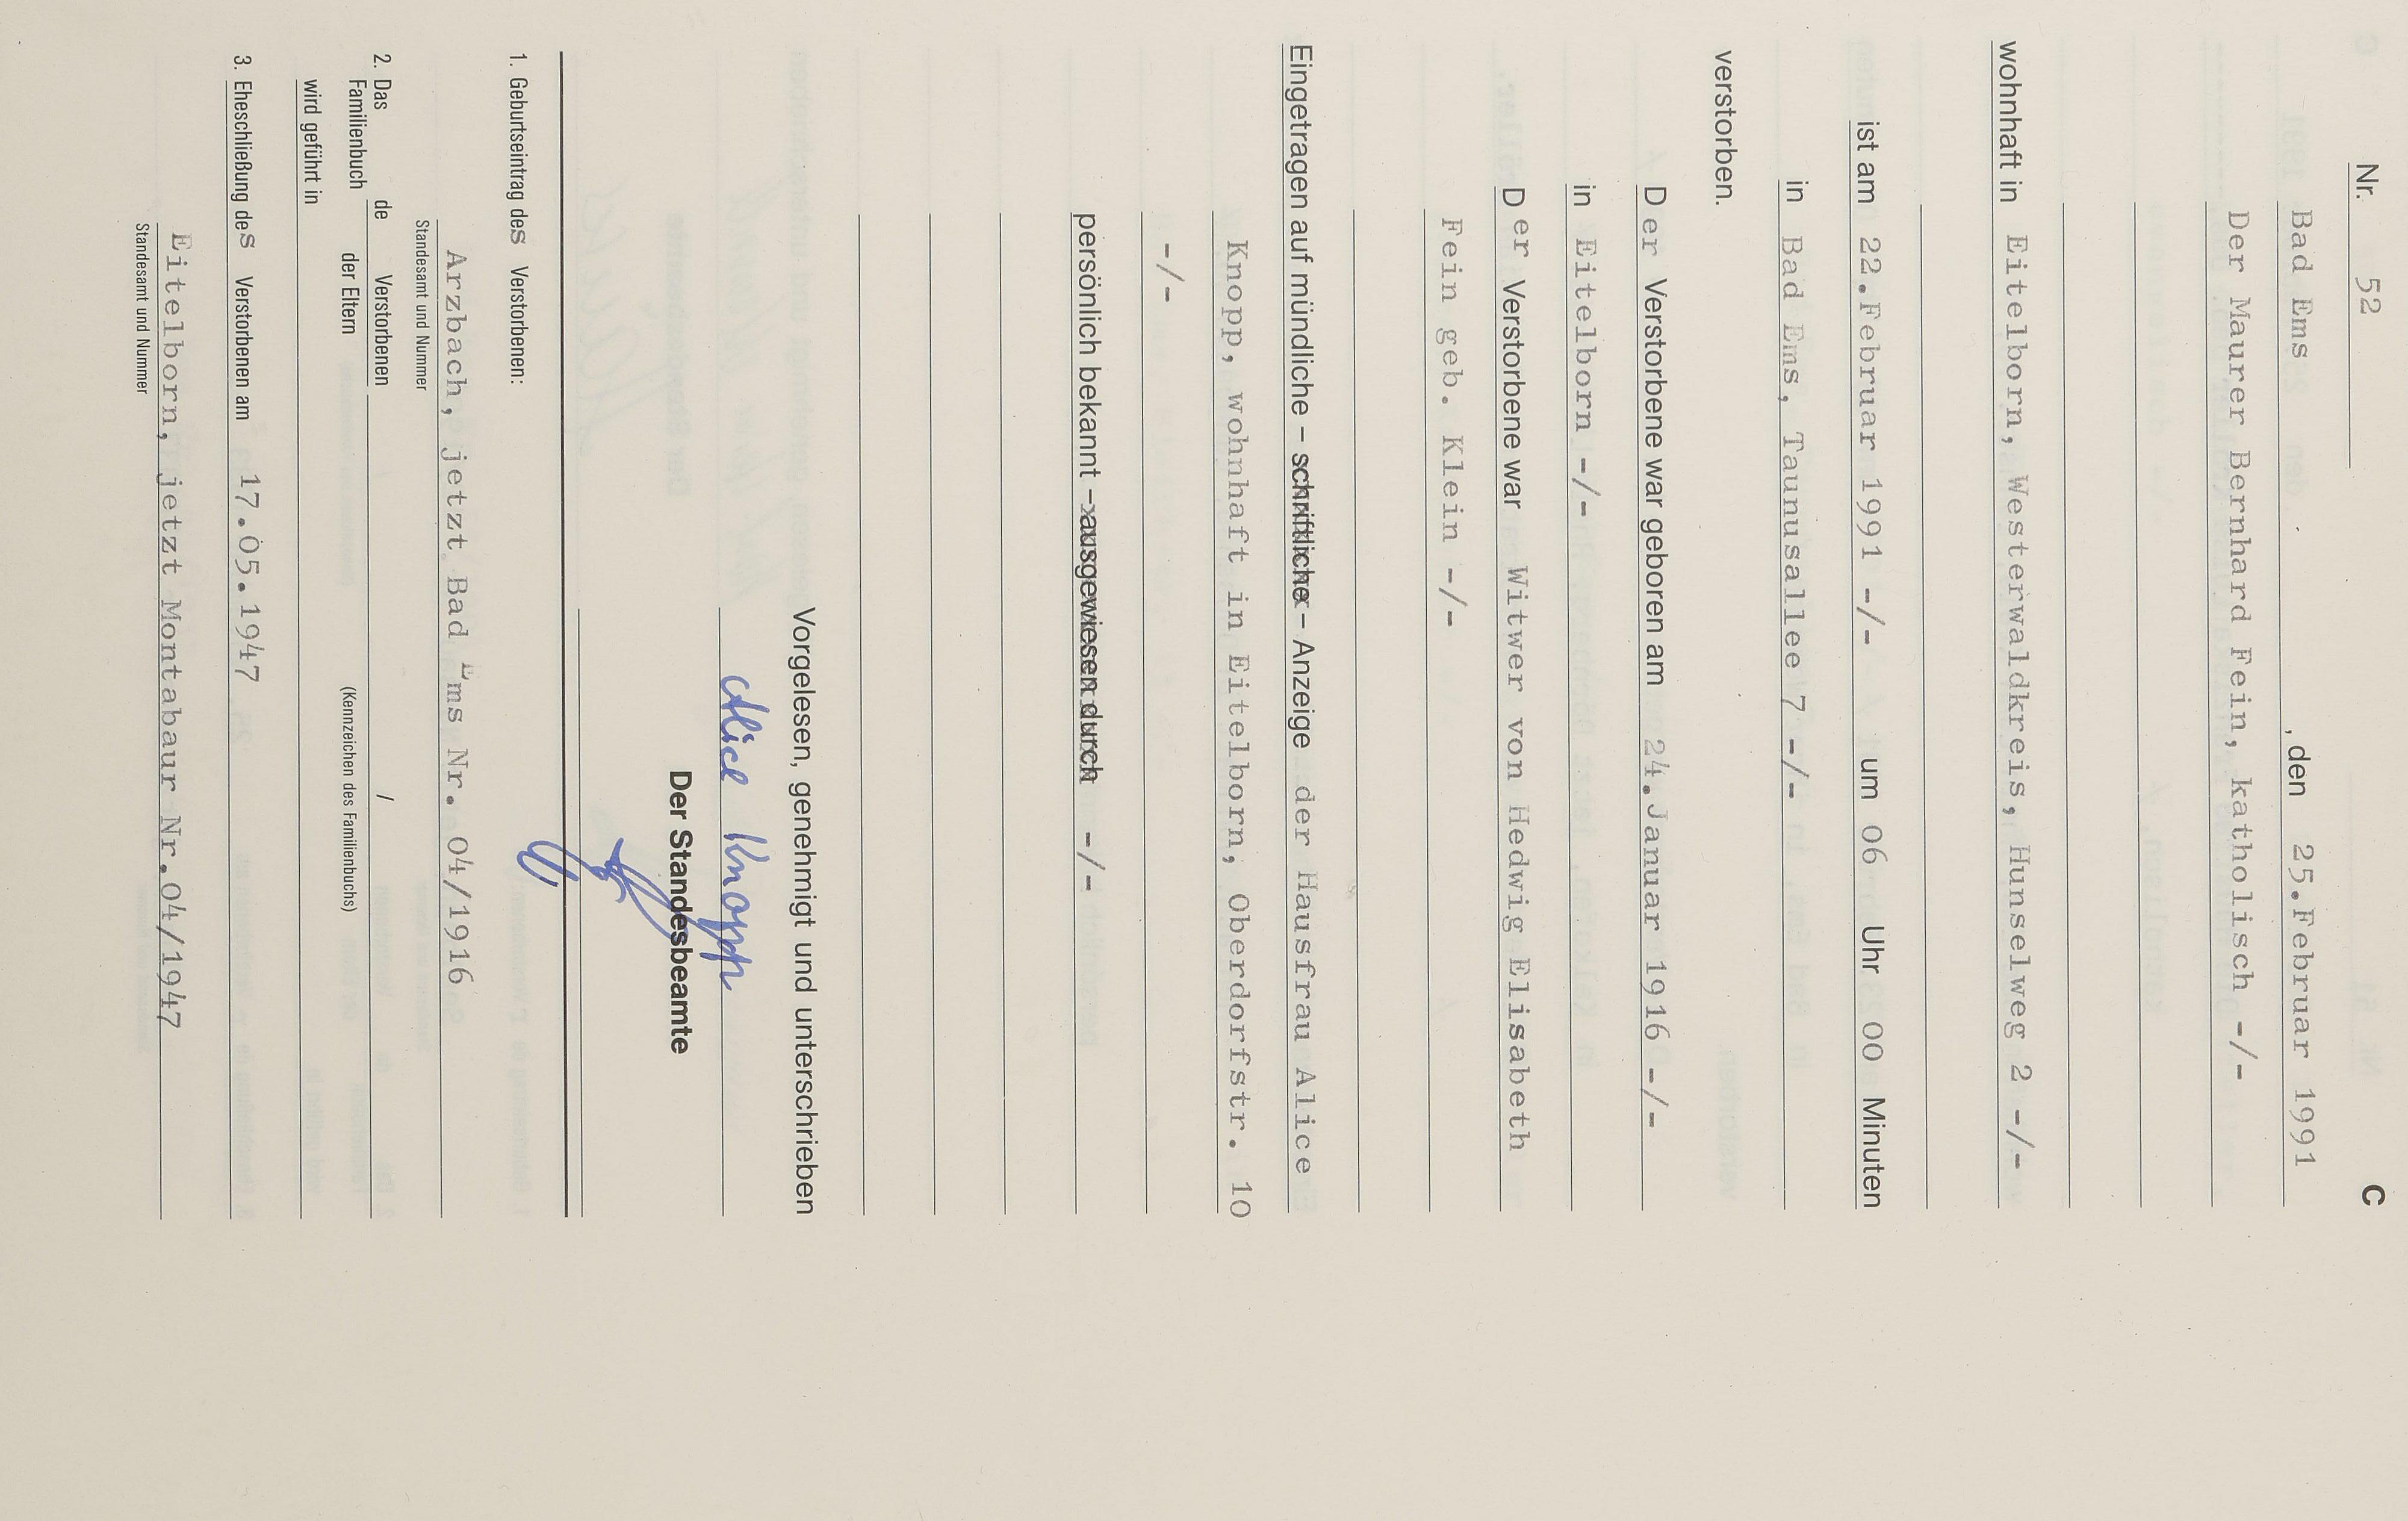 C
Nr. 52
Bad Ems , den 25.Februar 1991
Der Maurer Bernhard Fein, katholisch -/-
wohnhaft in Eitelborn, Westerwaldkreis, Hunselweg 2 -/-
ist am 22.Februar 1991 -/- um 06 Uhr 00 Minuten
in Bad Ems, Taunusallee 7 -/-
verstorben.
Der Verstorbene war geboren am 24.Januar 1916 -/-
in Eitelborn -/-
Der Verstorbene war Witwer von Hedwig Elisabeth
Fein geb. Klein -/-
Eingetragen auf mündliche – schriftliche – Anzeige der Hausfrau Alice
Knopp, wohnhaft in Eitelborn, Oberdorfstr. 10
-/-
persönlich bekannt – ausgewiesen durch -/-
Vorgelesen, genehmigt und unterschrieben
Alice Knopp
Der Standesbeamte
1. Geburtseintrag des Verstorbenen:
Arzbach, jetzt Bad Ems Nr. 04/1916
Standesamt und Nummer
2. Das de Verstorbenen /
Familienbuch der Eltern (Kennzeichen des Familienbuchs)
wird geführt in
3. Eheschließung des Verstorbenen am 17.05.1947
Eitelborn, jetzt Montabaur Nr.04/1947
Standesamt und Nummer